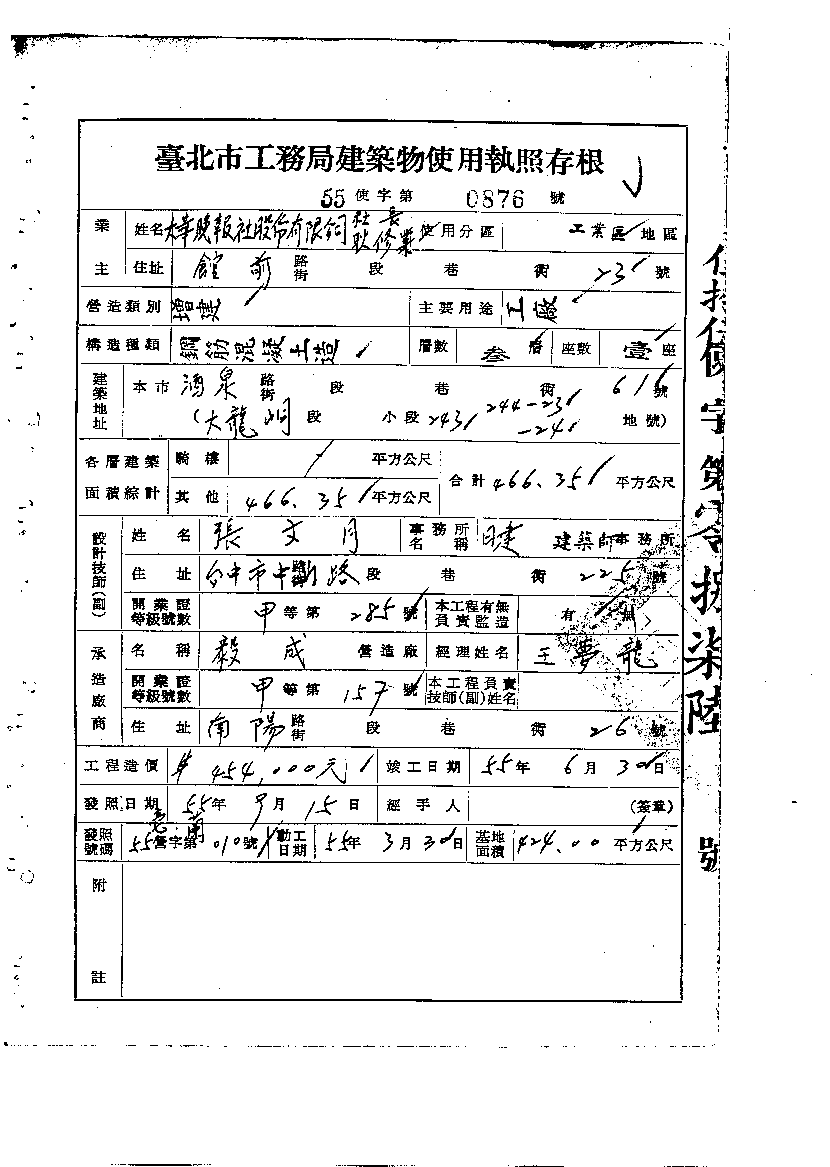 臺北市工務局建築物使用執照存根
55 使字第 0876 號
業主 姓名 大華晚報社股份有限公司 社長 耿修業 使用分區 工業區 地區
住址 館前 路街 段 巷 衖 23 號
營造類別 增建 主要用途 工廠
構造種類 鋼筋混凝土造 層數 叁層 座數 壹座
建築地址 本市 酒泉 路街 段 巷 衖 616 號
(大龍峒 段 小段 243 244-23 -24 地號)
各層建築面積綜計 騎樓 / 平方公尺 合計 466.35 平方公尺
其他 466.35 平方公尺
設計技師(副) 姓名 張文月 事務所名稱 建築師事務所
住址 台中市中 路 段 巷 衖 225 號
開業證等級號數 甲等第 285 號 本工程有無負責監造 有
承造廠商 名稱 毅成 營造廠 經理姓名 王夢龍
開業證等級號數 甲等第 157 號 本工程負責技師(副)姓名
住址 南陽 路街 段 巷 衖 26 號
工程造價 $454,000元 竣工日期 55年 6月 30日
發照日期 55年 9月 15日 經手人 (簽章)
發照號碼 55營字第 010 號 動工日期 55年 3月 30日 基地面積 424.00 平方公尺
附註
使字第零捌柒陸號